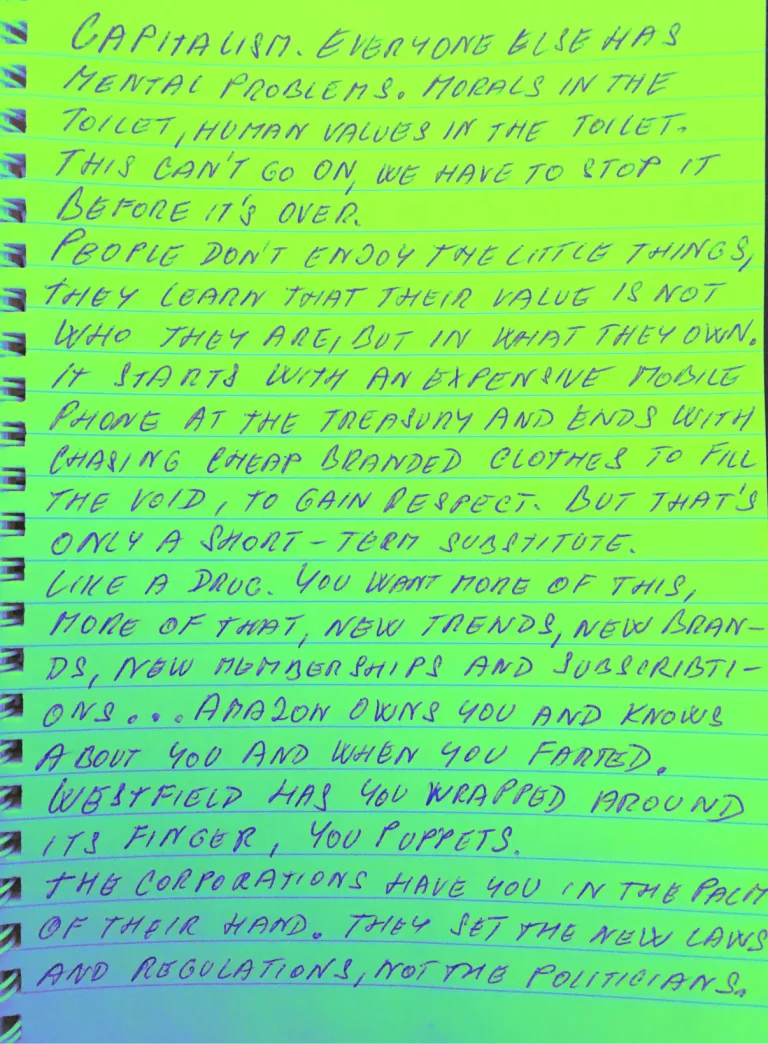 CAPITALISM. EVERYONE ELSE HAS
MENTAL PROBLEMS. MORALS IN THE
TOILET, HUMAN VALUES IN THE TOILET.
THIS CAN'T GO ON, WE HAVE TO STOP IT
BEFORE IT'S OVER.
PEOPLE DON'T ENJOY THE LITTLE THINGS,
THEY LEARN THAT THEIR VALUE IS NOT
WHO THEY ARE, BUT IN WHAT THEY OWN.
IT STARTS WITH AN EXPENSIVE MOBILE
PHONE AT THE TREASURY AND ENDS WITH
CHASING CHEAP BRANDED CLOTHES TO FILL
THE VOID, TO GAIN RESPECT. BUT THAT'S
ONLY A SHORT-TERM SUBSTITUTE.
LIKE A DRUG. YOU WANT MORE OF THIS,
MORE OF THAT, NEW TRENDS, NEW BRAN-
DS, NEW MEMBERSHIPS AND SUBSCRIBTI-
ONS... AMAZON OWNS YOU AND KNOWS
ABOUT YOU AND WHEN YOU FARTED.
WESTFIELD HAS YOU WRAPPED AROUND
ITS FINGER, YOU PUPPETS.
THE CORPORATIONS HAVE YOU IN THE PALM
OF THEIR HAND. THEY SET THE NEW LAWS
AND REGULATIONS, NOT THE POLITICIANS.